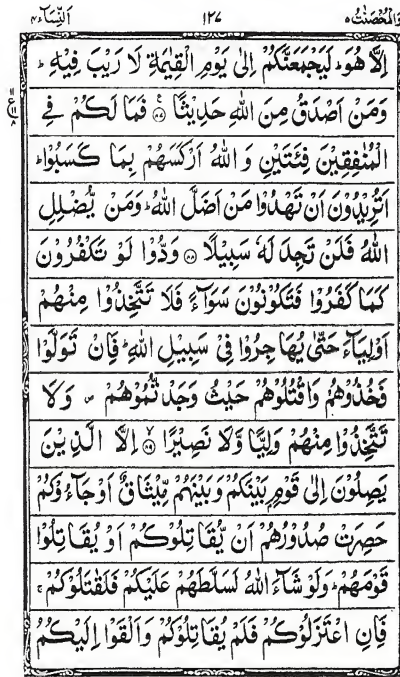 وَالْمُحْصَنٰتُ ٥ ١٢٧ اَلنِّسَآء ٤
اِلَّا هُوَ ؕ لَيَجْمَعَنَّكُمْ اِلٰى يَوْمِ الْقِيٰمَةِ لَا رَيْبَ فِيْهِ ؕ
وَمَنْ اَصْدَقُ مِنَ اللّٰهِ حَدِيْثًا ۟ فَمَا لَكُمْ فِي
الْمُنٰفِقِيْنَ فِئَتَيْنِ وَ اللّٰهُ اَرْكَسَهُمْ بِمَا كَسَبُوْا ؕ
اَتُرِيْدُوْنَ اَنْ تَهْدُوْا مَنْ اَضَلَّ اللّٰهُ ؕ وَمَنْ يُّضْلِلِ
اللّٰهُ فَلَنْ تَجِدَ لَهٗ سَبِيْلًا ۝ وَدُّوْا لَوْ تَكْفُرُوْنَ
كَمَا كَفَرُوْا فَتَكُوْنُوْنَ سَوَآءً فَلَا تَتَّخِذُوْا مِنْهُمْ
اَوْلِيَآءَ حَتّٰى يُهَاجِرُوْا فِيْ سَبِيْلِ اللّٰهِ ؕ فَاِنْ تَوَلَّوْا
فَخُذُوْهُمْ وَاقْتُلُوْهُمْ حَيْثُ وَجَدْتُّمُوْهُمْ ۪ وَلَا
تَتَّخِذُوْا مِنْهُمْ وَلِيًّا وَّلَا نَصِيْرًا ۝ اِلَّا الَّذِيْنَ
يَصِلُوْنَ اِلٰى قَوْمٍۭ بَيْنَكُمْ وَبَيْنَهُمْ مِّيْثَاقٌ اَوْ جَآءُوْكُمْ
حَصِرَتْ صُدُوْرُهُمْ اَنْ يُّقَاتِلُوْكُمْ اَوْ يُقَاتِلُوْا
قَوْمَهُمْ ؕ وَلَوْ شَآءَ اللّٰهُ لَسَلَّطَهُمْ عَلَيْكُمْ فَلَقٰتَلُوْكُمْ ۚ
فَاِنِ اعْتَزَلُوْكُمْ فَلَمْ يُقَاتِلُوْكُمْ وَاَلْقَوْا اِلَيْكُمُ